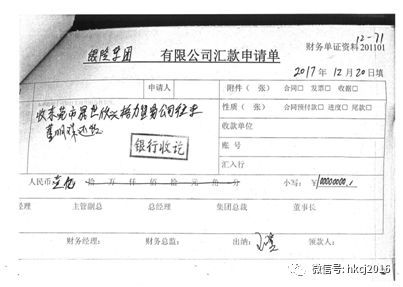 12-71
银隆集团 有限公司汇款申请单 财务单证资料 201101
2017 年 12 月 20 日填
申请人 附件（ 张） 合同□ 发票□ 收据□
性质（ 张） 合同预付款□ 进度□ 尾款□
收东莞市
收款单位
账号
银行收讫
汇入行
人民币 壹亿 拾 万 仟 佰 拾 元 角 分 小写：¥100000000.
经理 主管副总 总经理 集团总裁 董事长
财务经理： 财务总监： 出纳： 领款人：
微信号: hkcj2016